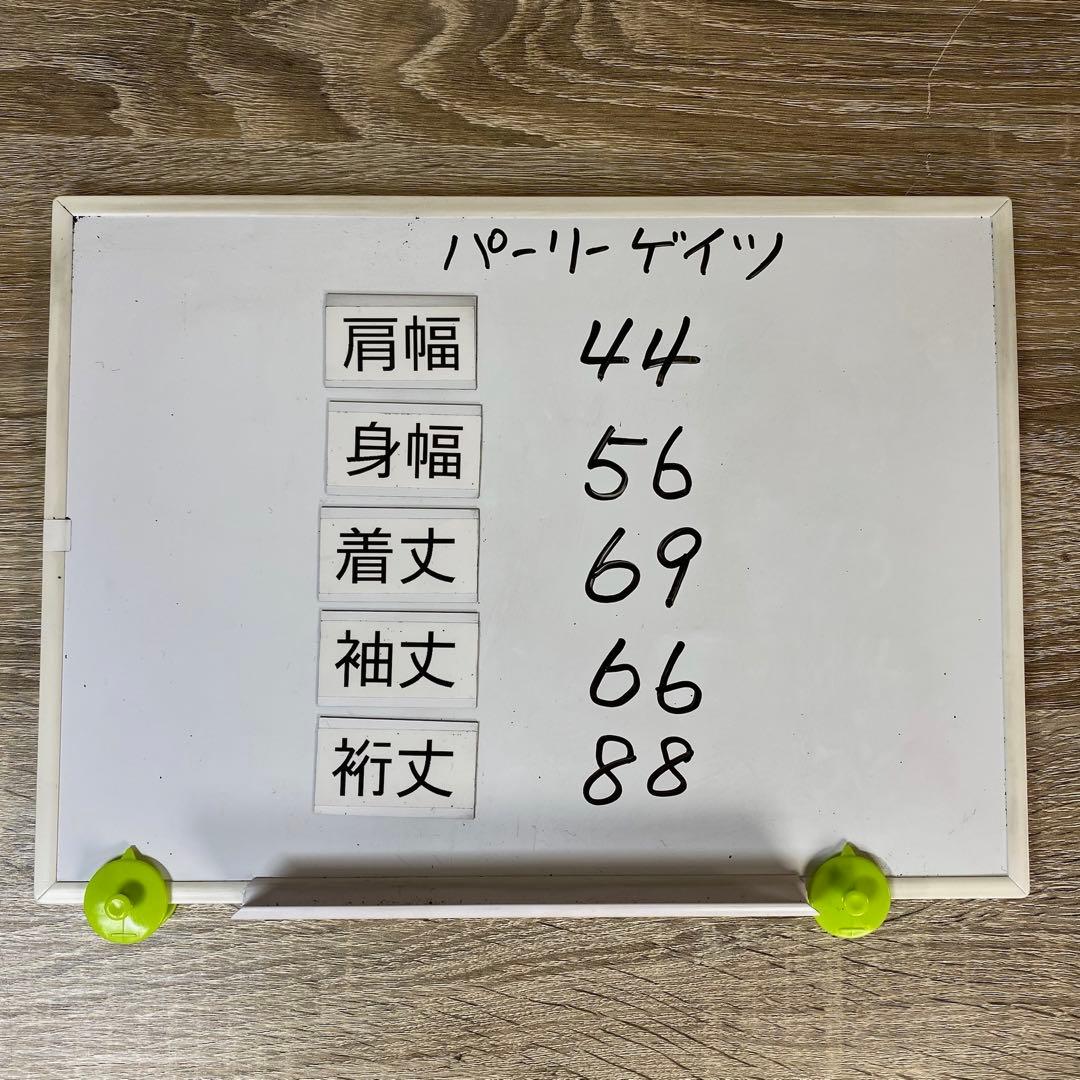 パーリーゲイツ
肩幅 44
身幅 56
着丈 69
袖丈 66
裄丈 88